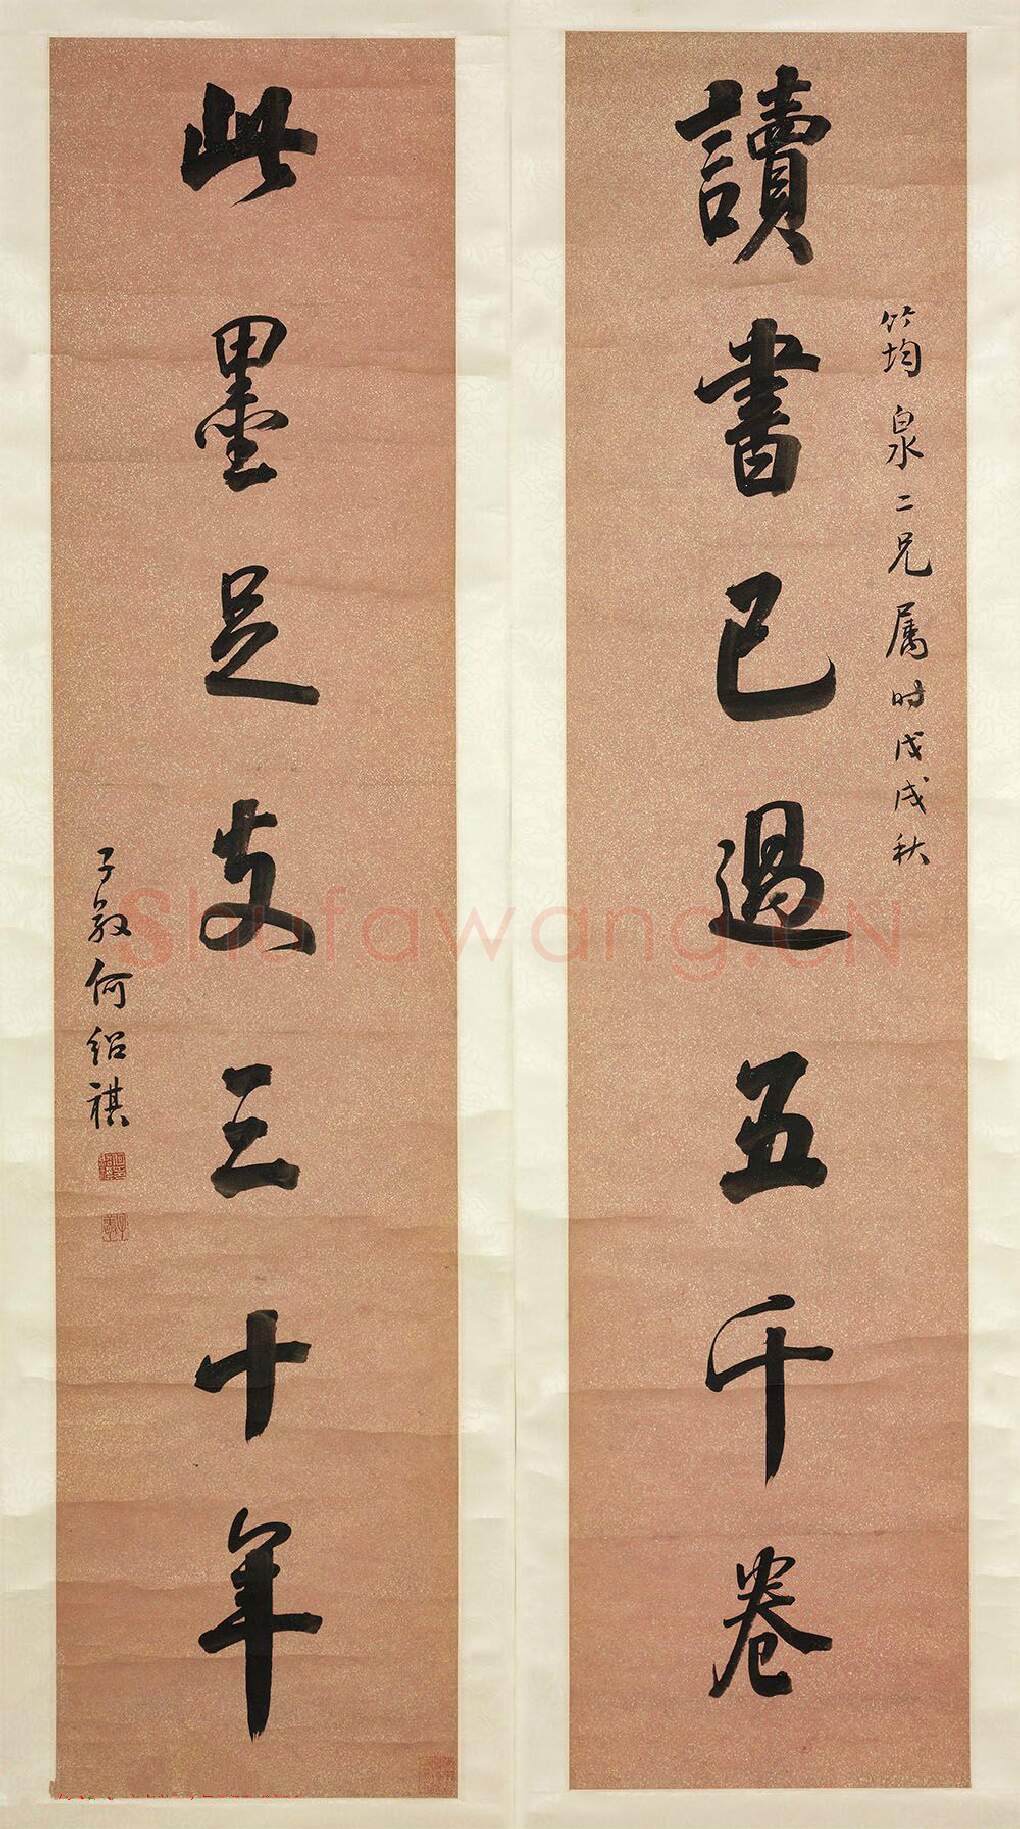 讀書已過五千卷
筠泉二兄属时戊戌秋
此墨足支三十年
子敦何紹祺
Shufawang.CN